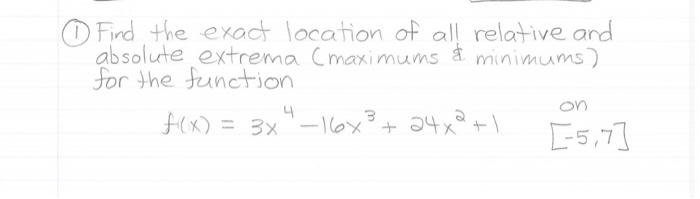 ① Find the exact location of all relative and
absolute extrema (maximums & minimums)
for the function
f(x) = 3x⁴ - 16x³ + 24x² + 1 on [-5,7]